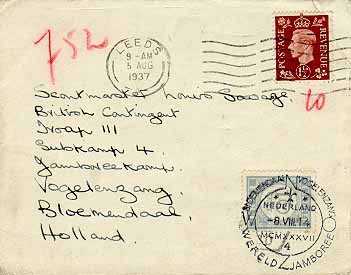 752
LEEDS
9-AM
5 AUG
1937
POSTAGE
REVENUE
1½
10
Scoutmaster Savage
British Contingent
Troop III
Subkamp 4.
Jamboreekamp.
Vogelenzang.
Bloemendaal,
Holland.
BLOEMENDAAL VOGELENZANG
NEDERLAND
-8.VIII.14
MCMXXXVII
4
WERELD JAMBOREE